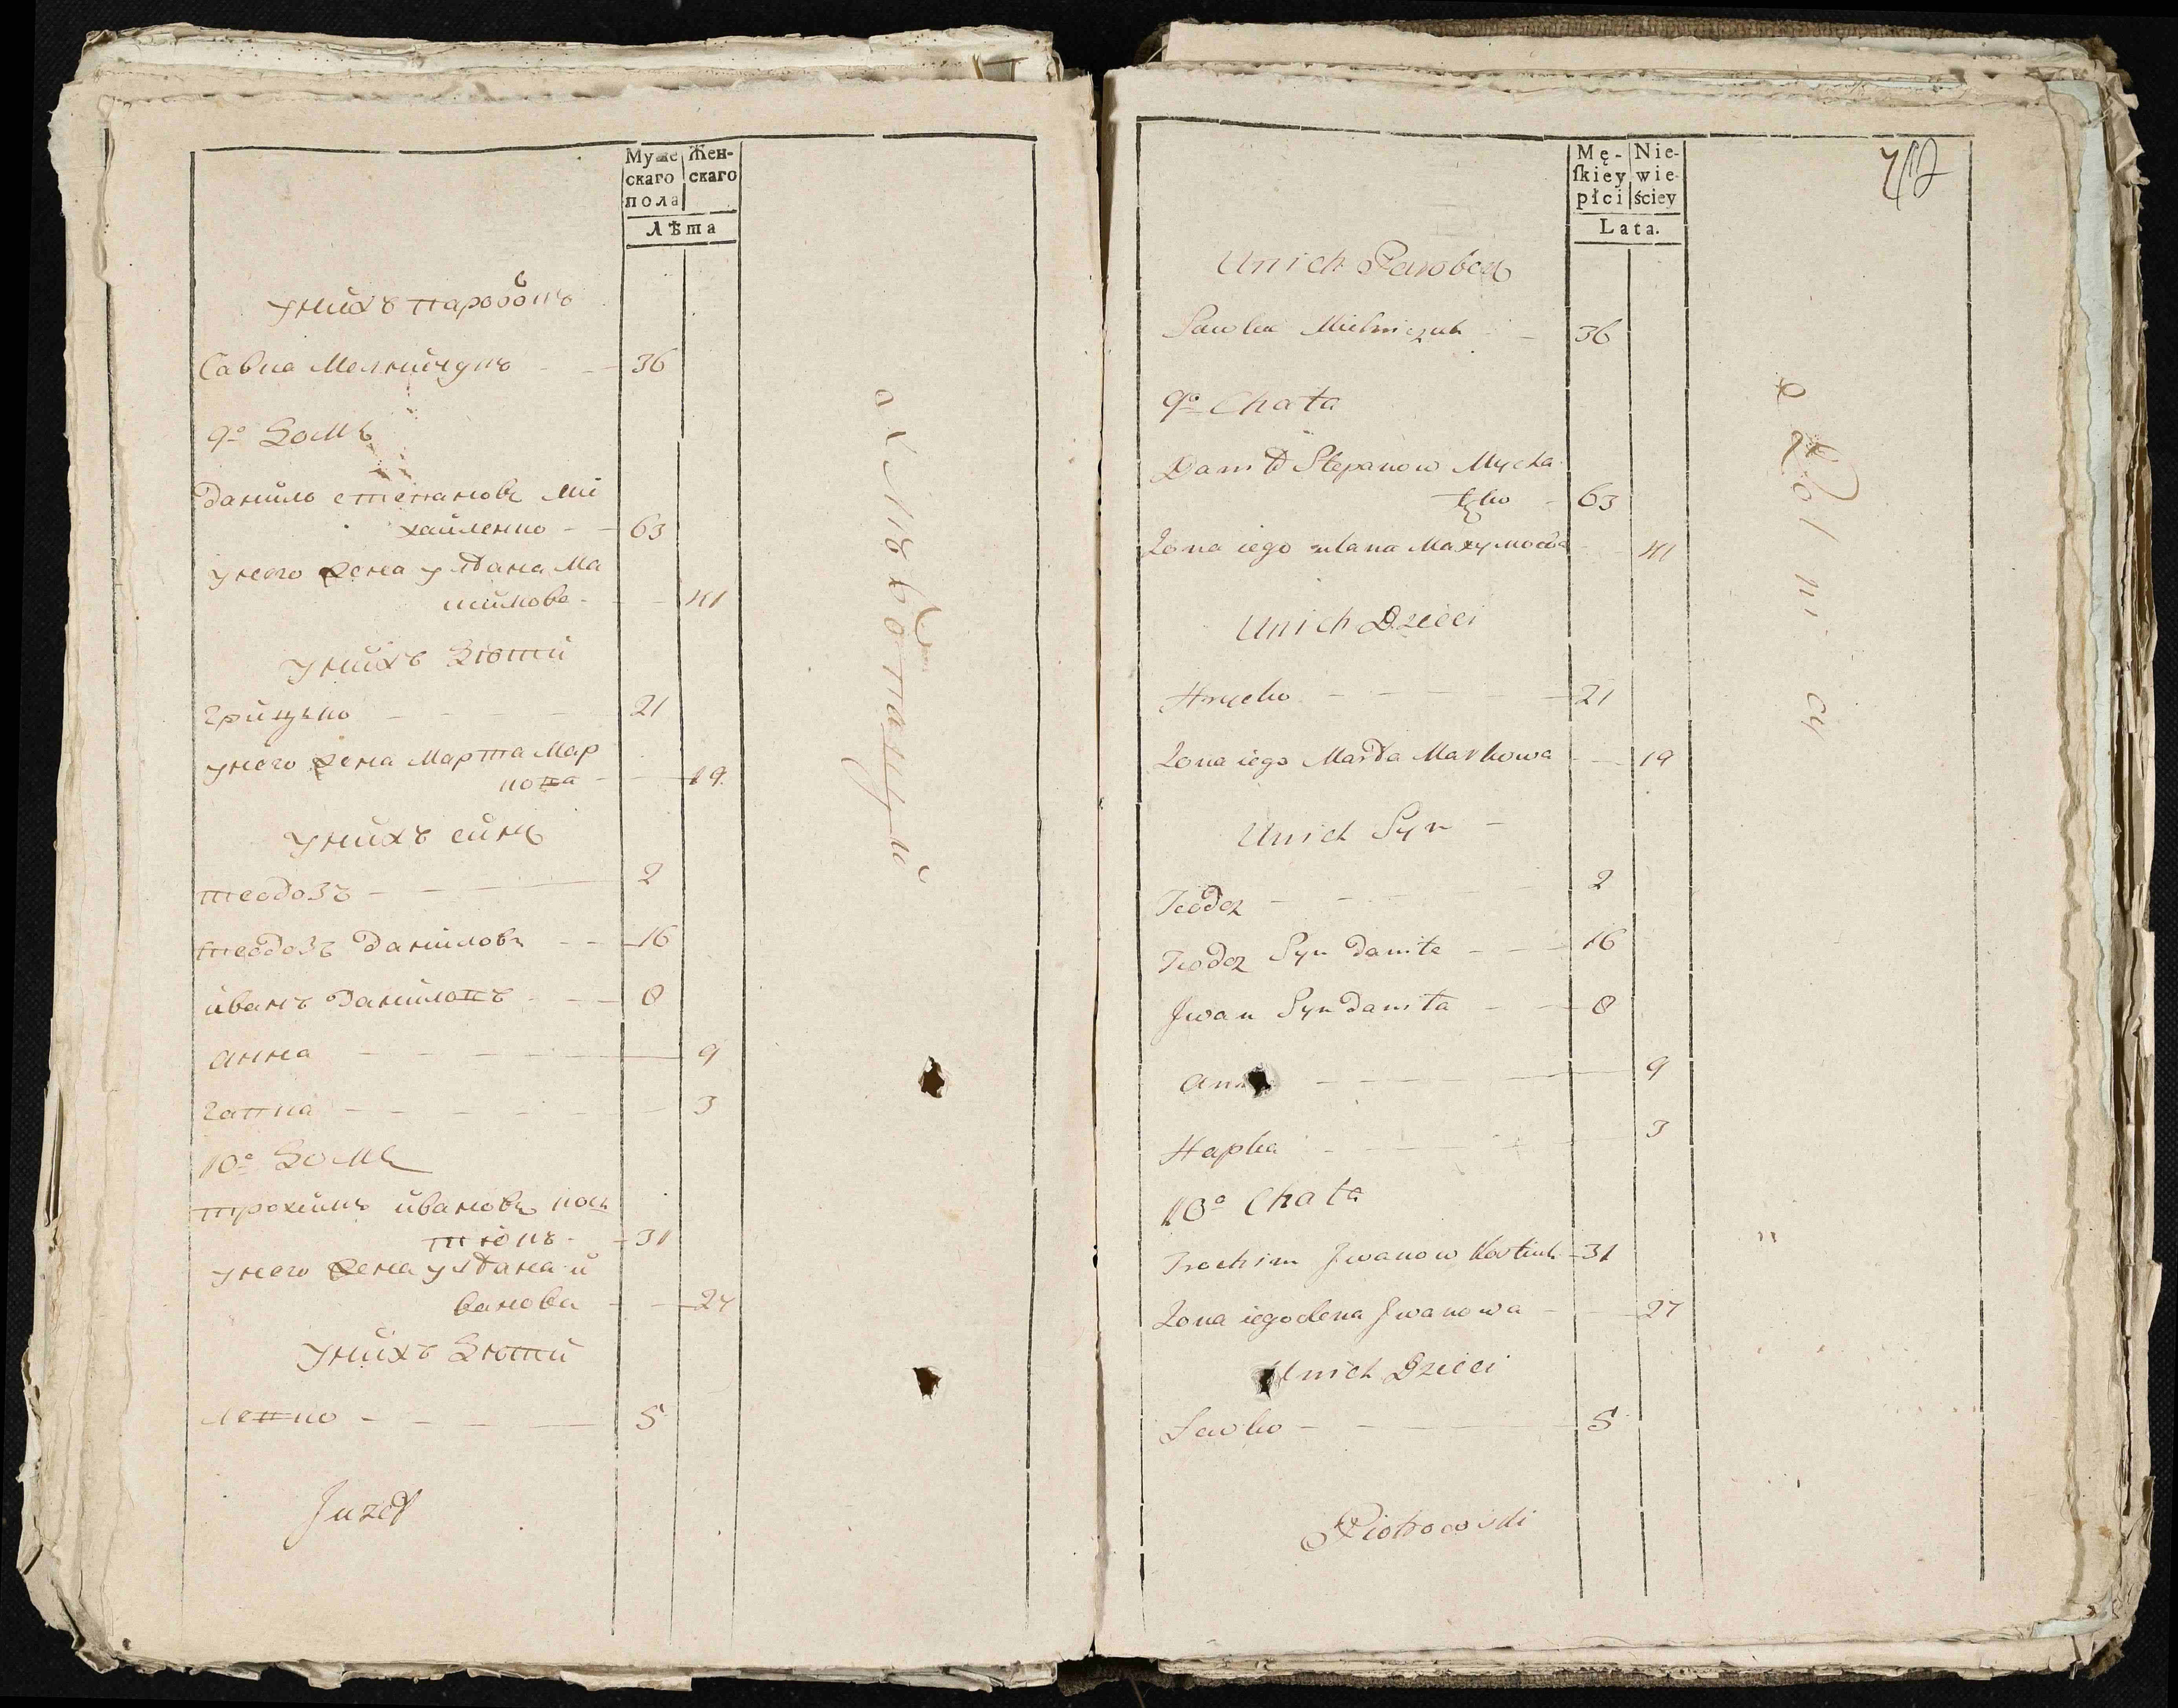 Муже
скаго
пола
Жен-
скаго
Лѣта
унихъ паробокъ
Савка Мелничукъ - - 36
9º Домъ
данило степановъ Ми
хайленко - - 63
унего жена улдана Ма
симова - - 41
унихъ дѣти
грицько - - - - 21
унего жена Марта Мар
кова - - 19
унихъ синъ
теодозъ - - - 2
теодозъ даниловъ - - 16
иванъ даниловъ - - 8
анна - - - - 9
гапка - - - - 3
10º Домъ
трохимъ ивановъ кос
тюкъ - 31
унего жена улдана и
ванова - - 27
унихъ дѣти
левко - - - - 5
Juzef
Mę-
ſkiey
płci
Nie-
wie-
ściey
Lata.
Unich Parobek
Sawka Mielniczuk - - 36
9º Chata
Daniło Stepanow Mycha
łko - 63
Zona iego ulana Maxymowa - - 41
Unich Dzieci
Hrycko - - - - 21
Zona iego Marta Markowa - - 19
Unich Syn -
Teodoz - - - 2
Teodoz Syn Daniła - - - 16
Jwan Syn Daniła - - 8
Ann - - - - 9
Hapka - - - - 3
10º Chata
Trochim Jwanow Kostiuk - 31
Zona iego olena Jwanowa - - 27
Unich Dzieci
Lewko - - - - 5
Piotrowski